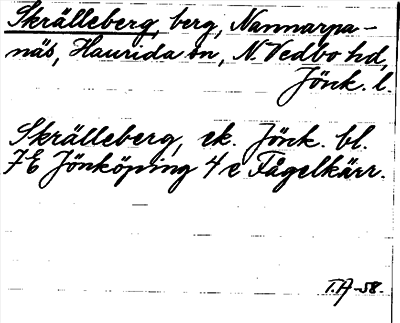 Skrälleberg, berg, Nannarpa-
näs, Haurida sn, N. Vedbo hd,
Jönk. l.
Skrälleberg, ek. Jönk. bl.
7 E Jönköping 4 e Fågelkärr.
T.A-58.